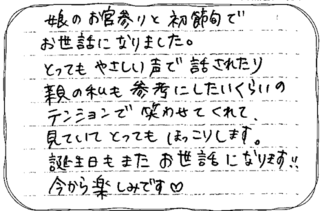 娘のお宮参りと初節句で
お世話になりました。
とってもやさしい声で話されたり
親の私も参考にしたいくらいの
テンションで笑わせてくれて、
見ていてとってもほっこりします。
誕生日もまたお世話になります!!
今から楽しみです♡